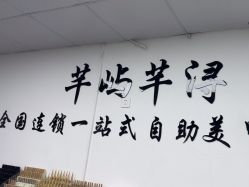 芊屿芊浔
全国连锁一站式自助美